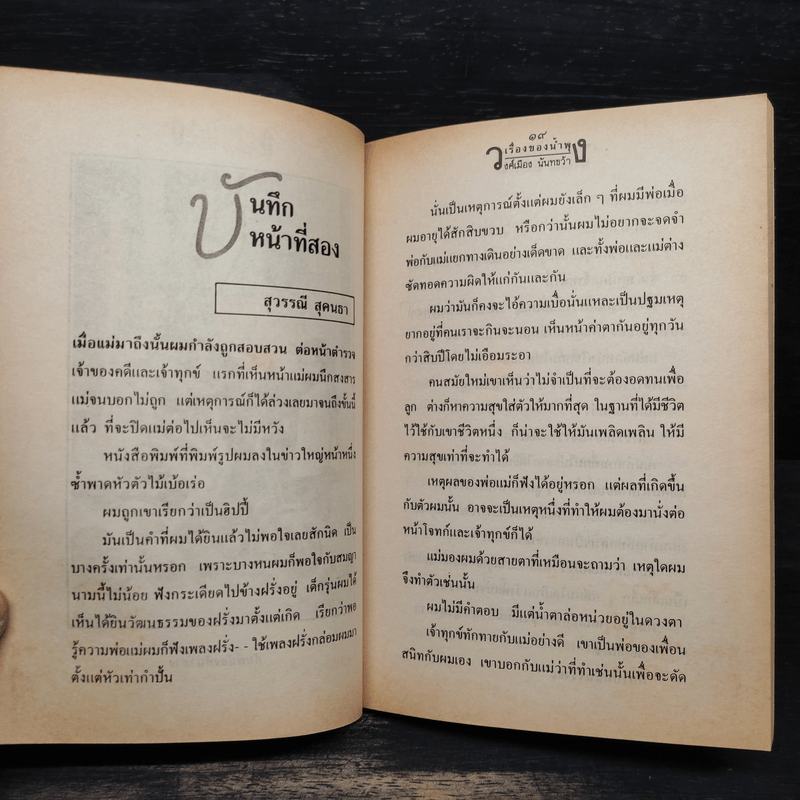 บันทึก
หน้าที่สอง
สุวรรณี สุคนธา
เมื่อแม่มาถึงนั้นผมกำลังถูกสอบสวน ต่อหน้าตำรวจ
เจ้าของคดีและเจ้าทุกข์ แรกที่เห็นหน้าแม่ผมนึกสงสาร
แม่จนบอกไม่ถูก แต่เหตุการณ์ก็ได้ล่วงเลยมาจนถึงขั้นนี้
แล้ว ที่จะปิดแม่ต่อไปเห็นจะไม่มีหวัง
หนังสือพิมพ์ที่พิมพ์รูปผมลงในข่าวใหญ่หน้าหนึ่ง
ซ้ำพาดหัวตัวไม้เบ้อเร่อ
ผมถูกเขาเรียกว่าเป็นฮิปปี้
มันเป็นคำที่ผมได้ยินแล้วไม่พอใจเลยสักนิด เป็น
บางครั้งเท่านั้นหรอก เพราะบางหนผมก็พอใจกับสมญา
นามนี้ไม่น้อย ฟังกระเดียดไปข้างฝรั่งอยู่ เด็กรุ่นผมได้
เห็นได้ยินวัฒนธรรมของฝรั่งมาตั้งแต่เกิด เรียกว่าพอ
รู้ความพ่อแม่ผมก็ฟังเพลงฝรั่ง- - ใช้เพลงฝรั่งกล่อมผมมา
ตั้งแต่หัวเท่ากำปั้น
๑๙
เรื่องของน้ำพุ
วงศ์เมือง นันทขว้าง
นั่นเป็นเหตุการณ์ตั้งแต่ผมยังเล็ก ๆ ที่ผมมีพ่อเมื่อ
ผมอายุได้สักสิบขวบ หรือกว่านั้นผมไม่อยากจะจดจำ
พ่อกับแม่แยกทางเดินอย่างเด็ดขาด และทั้งพ่อและแม่ต่าง
ซัดทอดความผิดให้แก่กันและกัน
ผมว่ามันก็คงจะไอ้ความเบื่อนั่นแหละเป็นปฐมเหตุ
ยากอยู่ที่คนเราจะกินจะนอน เห็นหน้าค่าตากันอยู่ทุกวัน
กว่าสิบปีโดยไม่เอือมระอา
คนสมัยใหม่เขาเห็นว่าไม่จำเป็นที่จะต้องอดทนเพื่อ
ลูก ต่างก็หาความสุขใส่ตัวให้มากที่สุด ในฐานที่ได้มีชีวิต
ไว้ใช้กับเขาชีวิตหนึ่ง ก็น่าจะใช้ให้มันเพลิดเพลิน ให้มี
ความสุขเท่าที่จะทำได้
เหตุผลของพ่อแม่ก็ฟังได้อยู่หรอก แต่ผลที่เกิดขึ้น
กับตัวผมนั้น อาจจะเป็นเหตุหนึ่งที่ทำให้ผมต้องมานั่งต่อ
หน้าโจทก์และเจ้าทุกข์ก็ได้
แม่มองผมด้วยสายตาที่เหมือนจะถามว่า เหตุใดผม
จึงทำตัวเช่นนั้น
ผมไม่มีคำตอบ มีแต่น้ำตาล่อหน่วยอยู่ในดวงตา
เจ้าทุกข์ทักทายกับแม่อย่างดี เขาเป็นพ่อของเพื่อน
สนิทกับผมเอง เขาบอกกับแม่ว่าที่ทำเช่นนั้นเพื่อจะดัด